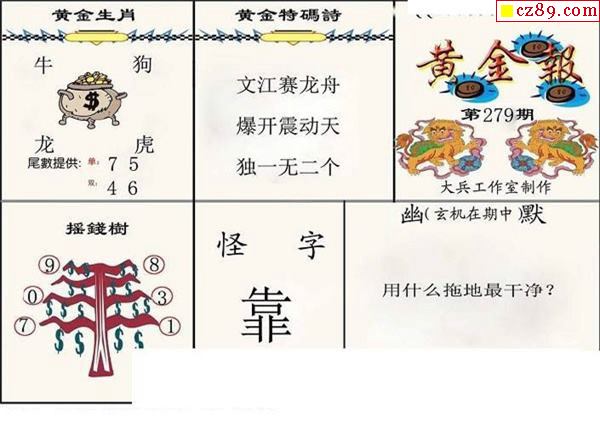 cz89.com
黄金生肖
牛 狗
$
龙 虎
尾數提供: 单: 7 5
双: 4 6
黄金特碼詩
文江赛龙舟
爆开震动天
独一无二个
黄金報
第279期
大兵工作室制作
摇錢樹
9 8
0 3
7 1
怪 字
靠
幽(玄机在期中)默
用什么拖地最干净?